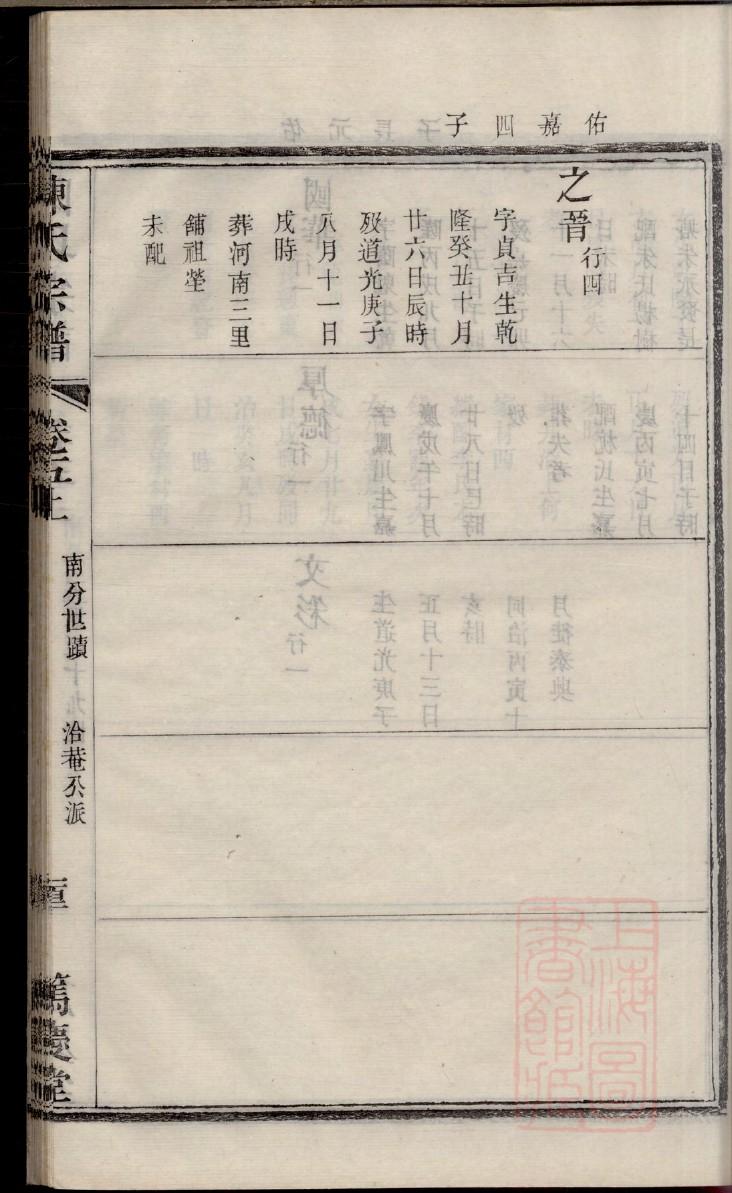 佑嘉四子
之晉行四
字貞吉生乾
隆癸丑十月
廿六日辰時
歿道光庚子
八月十一日
戌時
葬河南三里
鋪祖塋
未配
陳氏宗譜
卷五上
南分世蹟十九
洽菴公派
篤慶堂
上海圖
書館藏